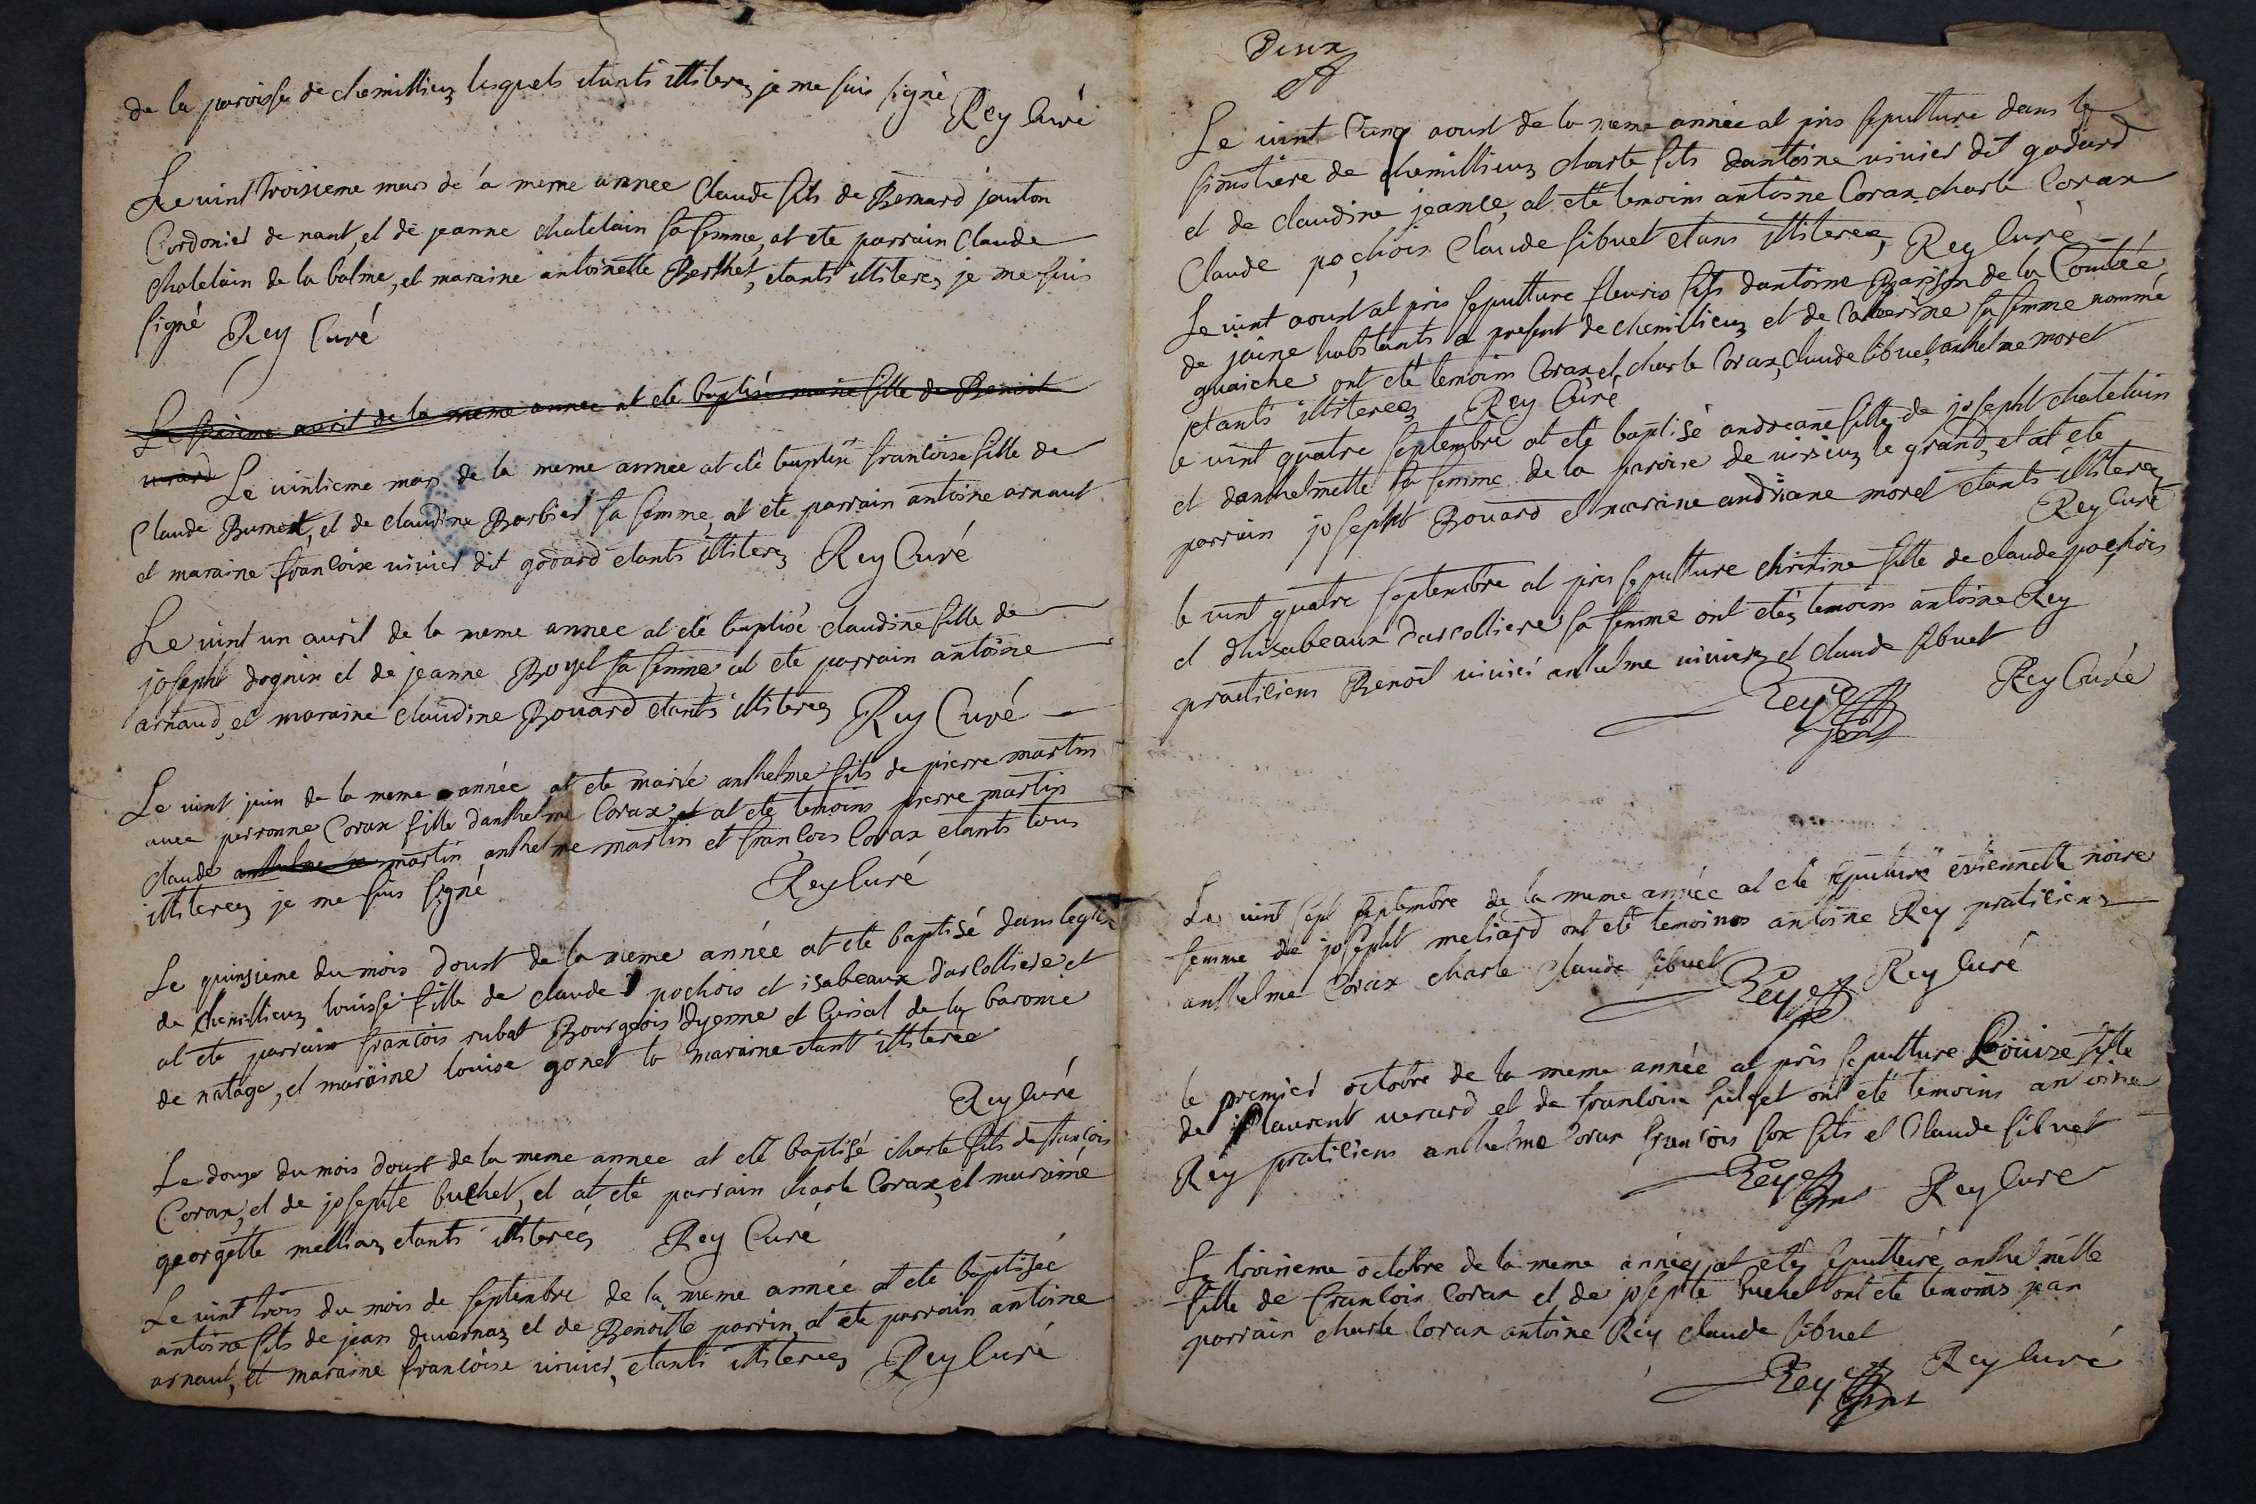 de la paroisse de chemillieuz lesquels etants illiterez je me suis signé
Rey Curé
Le vint troisieme mars de la meme annee Claude fils de Bernard janton
Cordonier de nant, et de jeanne chatelain sa femme, at ete parrain Claude
chatelain de la balme, et maraine antoinette Berthet, etants illiterez je me suis
signé Rey Curé
Le avril de la meme annee at eté baptisé marie fille de Benoit
Le vintieme mars de la meme annee at eté baptisé francoise fille de
Claude Burnet, et de claudine Barbier sa femme, at ete parrain antoine arnaut
et maraine francoise vivier dit godard etants illiterez Rey Curé
Le vint un avril de la meme annee at eté baptisé claudine fille de
josepht dognin et de jeanne Boyet sa femme at ete parrain antoine
arnaud, et maraine claudine Bouard etants illiterez Rey Curé
Le vint juin de la meme année at ete marié anthelme fils de pierre martin
avec perronne Corax fille danthelme Corax et at eté temoins pierre martin
claude martin anthelme martin et francois Corax etants tous
illiterez je me suis signé Rey Curé
Le quinsieme du mois doust de la meme année at ete baptisé dans leglise
de chemillieuz louise fille de claude pochois et isabeaux darcolliere et
at ete parrain francois rubat Bourgeois dyenne et de la baronie
de natage, et maraine louise gonet la maraine etant illiterée
Rey Curé
Le douze du mois doust de la meme annee at eté baptisé charle fils de francois
Corax, et de josepte buchet, et at ete parrain charle Corax, et maraine
georgette melliaz etants illiterez Rey Curé
Le vint trois du mois de septembre de la meme année at ete baptisée
antoine fils de jean duvernaz et de Benoitte parrin, at ete parrain antoine
arnaut, et maraine francoise vivier, etants illiterez Rey Curé
Deux
Le vint Cinq aoust de la meme année at pris sepulture dans le
simistiere de chemillieuz charle fils dantoine vivier dit godard
et de claudine jeance, at eté temoins antoine Corax charle Corax
Claude pochois Claude sibuet etans illiterez, Rey Curé
Le vint aoust at pris sepulture fleuris fils dantoine de la Combée
de joine habitants a present de chemillieuz et de Catherine sa femme nommé
guaiche ont eté temoins Corax et charle Corax, Claude sibuet, anthelme moret
etants illiterez Rey Curé
le vint quatre septembre at eté baptisé andreane fille de josepht chatelain
et danthelmette sa femme de la paroise de virieuz le grand, et at ete
parrain josepht Bouard et maraine andreane morel etants illiterez
Rey Curé
le vint quatre septembre at pris sepulture christine fille de claude pochois
et dhisabeaux darcolliere sa femme ont etéz temoins antoine Rey
practiciens Benoit vivier anthelme vivier et claude sibuet
Rey Rey Curé
Le vint sept septembre de la meme année at eté sepulturé estiennette noire
femme de josepht meliard ont eté temoins antoine Rey praticiens
anthelme Corax charle Claude sibuet
Rey Rey Curé
le premier octobre de la meme année at pris sepulture Louise fille
de laurent verard et de francoise ont eté temoins antoine
Rey praticiens anthelme Corax francois son fils et Claude sibuet
Rey Rey Curé
Le troisieme octobre de la meme année at etéz sepulturé anthelmette
fille de francois Corax et de josepte buchet ont eté temoins jean
parrain charle Corax antoine Rey Claude sibuet
Rey Rey Curé